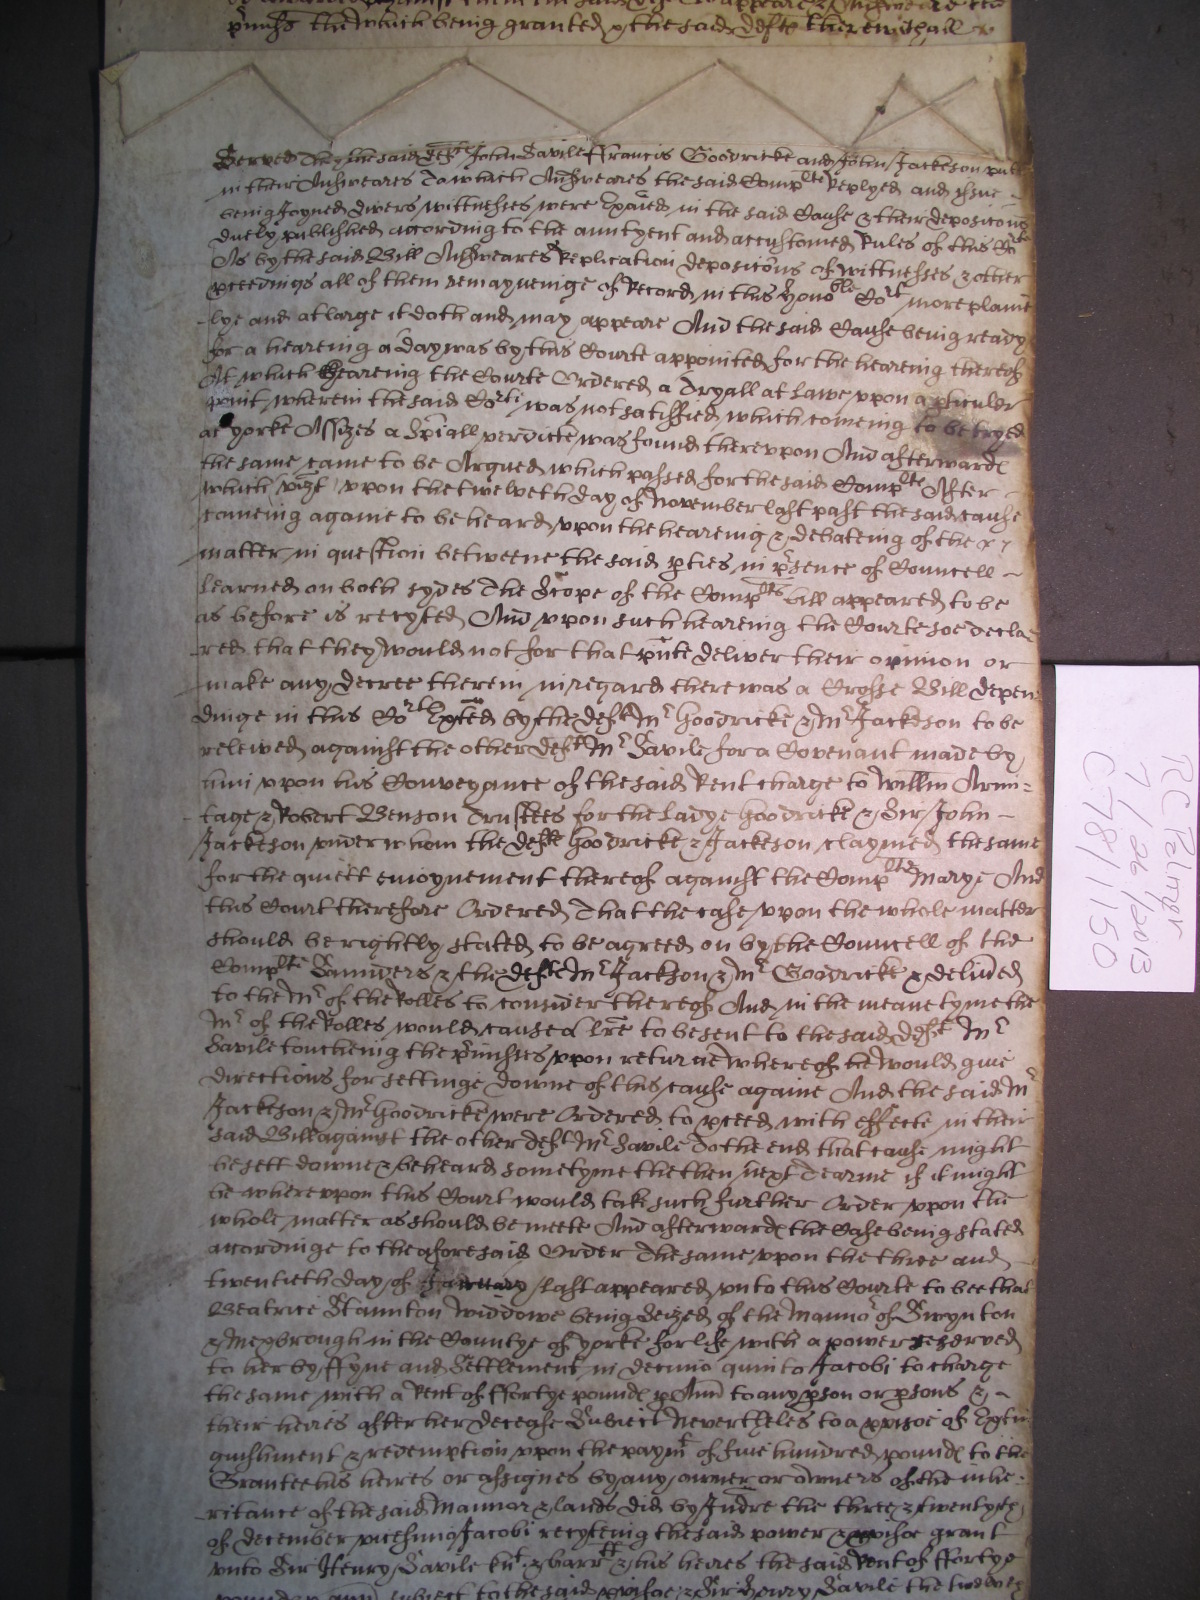 p̃misses the which being granted & the said Defts therewithall
Served They the said Defts John Savile ffrancis Goodricke and John Jackson putt
in their Answeares To which Answeares the said Complts Replyed and issue
being Joyned divers wittnesses were Exãied in the said Cause & their depositions
duely published according to the auntyent and accustomed Rules of this Cort
As by the said Bill Answeares Replication depositõns of wittnesses & other
pceedings all of them remayneinge of Record in this Honoble Cort more plaine
lye and at large it doth and may appeare And the said Cause being ready
for a heareing a day was by this Courte appointed for the heareing thereof
At which heareing the Courte Ordered a Tryall at Lawe upon a pticuler
point wherein the said Cort was not satisfied which comeing to be tryed
at Yorke Assizes a Sp̃iall verdicte was found thereupon And afterwards
the same came to be Argued which passed for the said Complts After
which vizt upon the twelveth day of November last past the said cause
comeing againe to be heard upon the heareing & debateing of the
matter in question betweene the said pties in p̃sence of Councell
learned on both sydes The Scope of the Complts bill appeared to be
as before is recyted And upon such heareing the Courte soe decla
red that they would not for that p̃nte deliver their opinion or
make any decree therein in regard there was a Crosse Bill depen
dinge in this Cort Exĥted by the Defts Mr Goodricke & Mr Jackson to be
releived against the other Deft Mr Savile for a Covenant made by
him upon his Conveyance of the said Rent charge to Willm̃ Armi=
tage & Robert Benson Trustees for the Ladye Goodricke & Sir John
Jackson under whom the Defts Goodricke & Jackson claymed the same
for the quiett enioynement thereof against the Complt Marye And
this Court therefore Ordered That the case upon the whole matter
should be rightly stated to be agreed on by the Councell of the
Complts Saunders & the Defts Mr Jackson & Mr Goodricke & deliũed
to the Mr of the Rolles to consider thereof And in the meane tyme the
Mr of the Rolles would cause a lr̃e to be sent to the said Deft Mr
Savile toucheing the p̃misses upon returne whereof he would give
directions for settinge downe of this cause againe And the said Mr
Jackson & Mr Goodricke were Ordered to pceed with effecte in their
said Bill against the other Deft Mr Savile To the end that cause might
be sett downe & be heard sometyme the then next Tearme if it might
be whereupon this Court would take such further Order upon the
whole matter as should be meete And afterwards the Case being stated
accordinge to the aforesaid Order The same upon the three and
twentieth day of January last appeared unto this Courte to bee that
Beatrice Staunton widdowe being seized of the Mannor of Swynton
& Mexbrough in the Countye of Yorke for life with a power reserved
to her by ffyne and Settlement in decimo quinto Jacobi to charge
the same with a Rent of ffortye pounds p Ann̄ to any pson or psons &
their heires after her decease Subiect Nevertheles to a pvisoe of Extin
guishment & redemption upon the paymt of five hundred pounds to the
Grantee his heires or assignes by any owner or owners of the inhe
ritance of the said Mannor & lands did by Indr̃e the three & twentyeth
of december vicesimo Jacobi recyteing the said power & pvisoe grant
unto Sir Henry Savile knt & barrtt & his heires the said Rent of ffortye
pounds p ann̄ subiect to the said pvisoe & Sir Henry Savile the twelveth
RC Palmer
7/26/2013
C78/1150